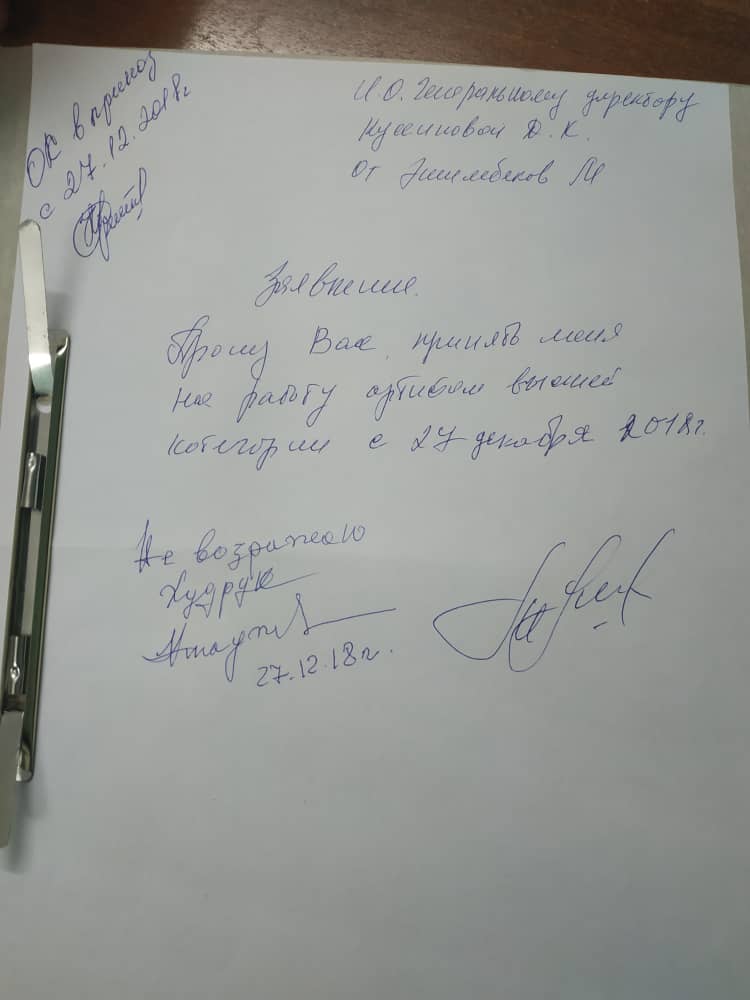 ОК в приказ
с 27.12.2018г
И.О. Генеральному директору
Кусаиновой Д.К.
от Эшимбеков М
Заявление.
Прошу Вас, принять меня
на работу артистом высшей
категории с 27 декабря 2018г.
Не возражаю
Худрук
27.12.18г.